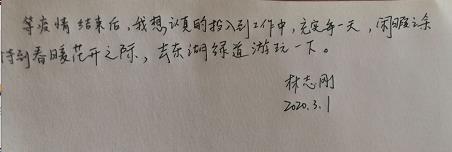 等疫情结束后，我想认真的投入到工作中，充实每一天，闲暇之余
待到春暖花开之际，去东湖绿道游玩一下。
林志刚
2020.3.1